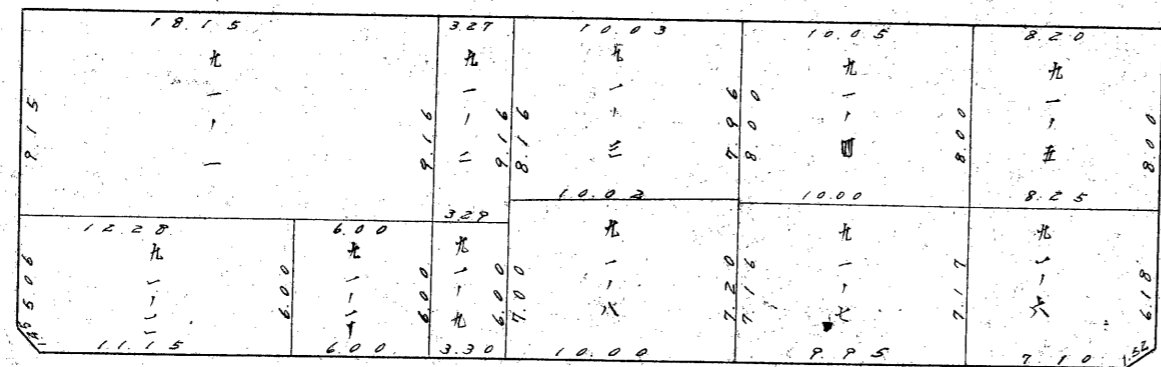 18.15
九一ノ一
9.15
9.16
3.27
九一ノ二
9.16
3.29
10.03
九一ノ三
8.16
7.96
10.02
10.05
九一ノ四
8.00
8.00
10.00
8.20
九一ノ五
8.00
8.25
12.28
九一ノ一一
5.06
6.00
11.15
6.00
九一ノ一〇
6.00
6.00
九一ノ九
6.00
3.30
九一ノ八
7.00
7.20
10.00
九一ノ七
7.16
7.17
9.95
九一ノ六
6.18
7.10
1.52